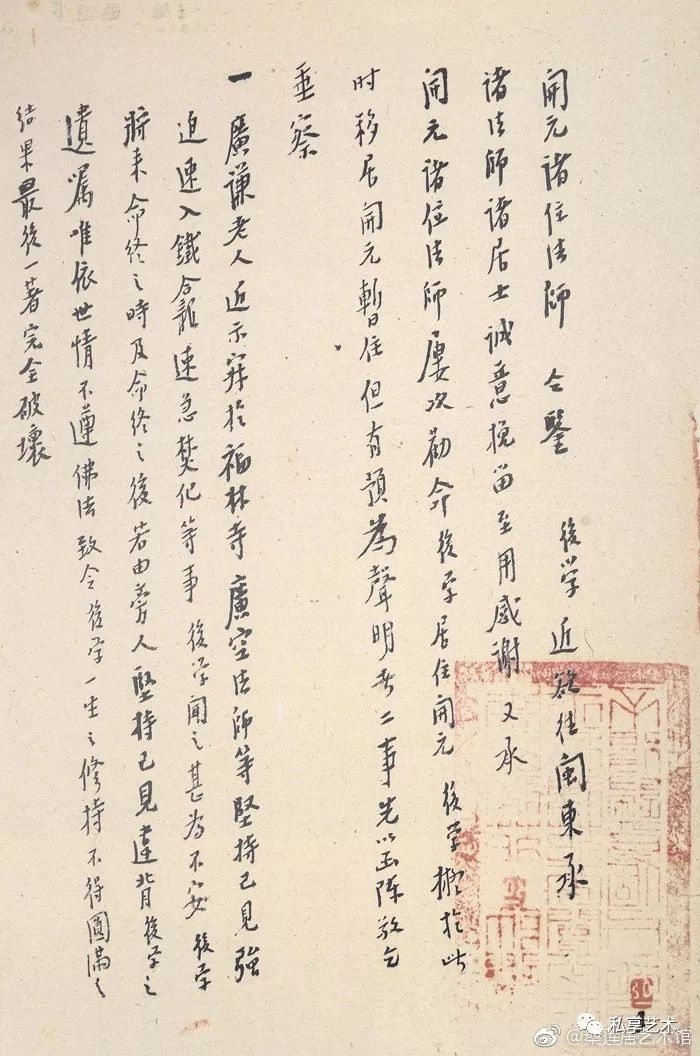 開元諸位法師 仝鑒 後学近欲往闽東承
諸法師諸居士誠意挽留至用感謝又承
開元諸位法師屢次勸命後学居住開元 後学擬於此
时移居開元暫住但有預為聲明者二事先以函陳敬乞
垂察
一 廣謙老人近示寂於福林寺廣空法师等堅持己見強
迫速入鐵合龕速急焚化等事後学闻之甚為不安後学
將来命终之時及命终之後若由旁人堅持己見違背後学之
遺嘱唯依世情不遵佛法致令後学一生之修持不得圓滿之
结果最後一著完全破壞
私享艺术
@秦莲居艺术馆